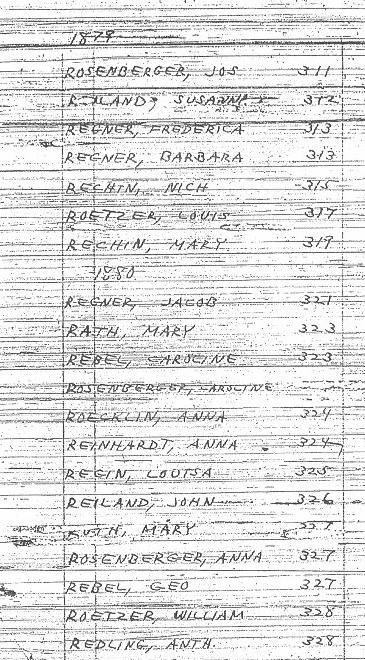 1879
ROSENBERGER, JOS 311
SUSANNA 312
REGNER, FREDERICA 313
REGNER, BARBARA 313
RECHIN, NICH 315
ROETZER, LOUIS 317
RECHIN, MARY 319
1880
REGNER, JACOB 321
RATH, MARY 323
REBEL, CAROLINE 323
ROSENBERGER, CAROLINE
ROECKLIN, ANNA 324
REINHARDT, ANNA 324
REGIN, LOUISA 325
REILAND, JOHN 326
RUTH, MARY
ROSENBERGER, ANNA 327
REBEL, GEO 327
ROETZER, WILLIAM 328
REDLING, ANTH. 328